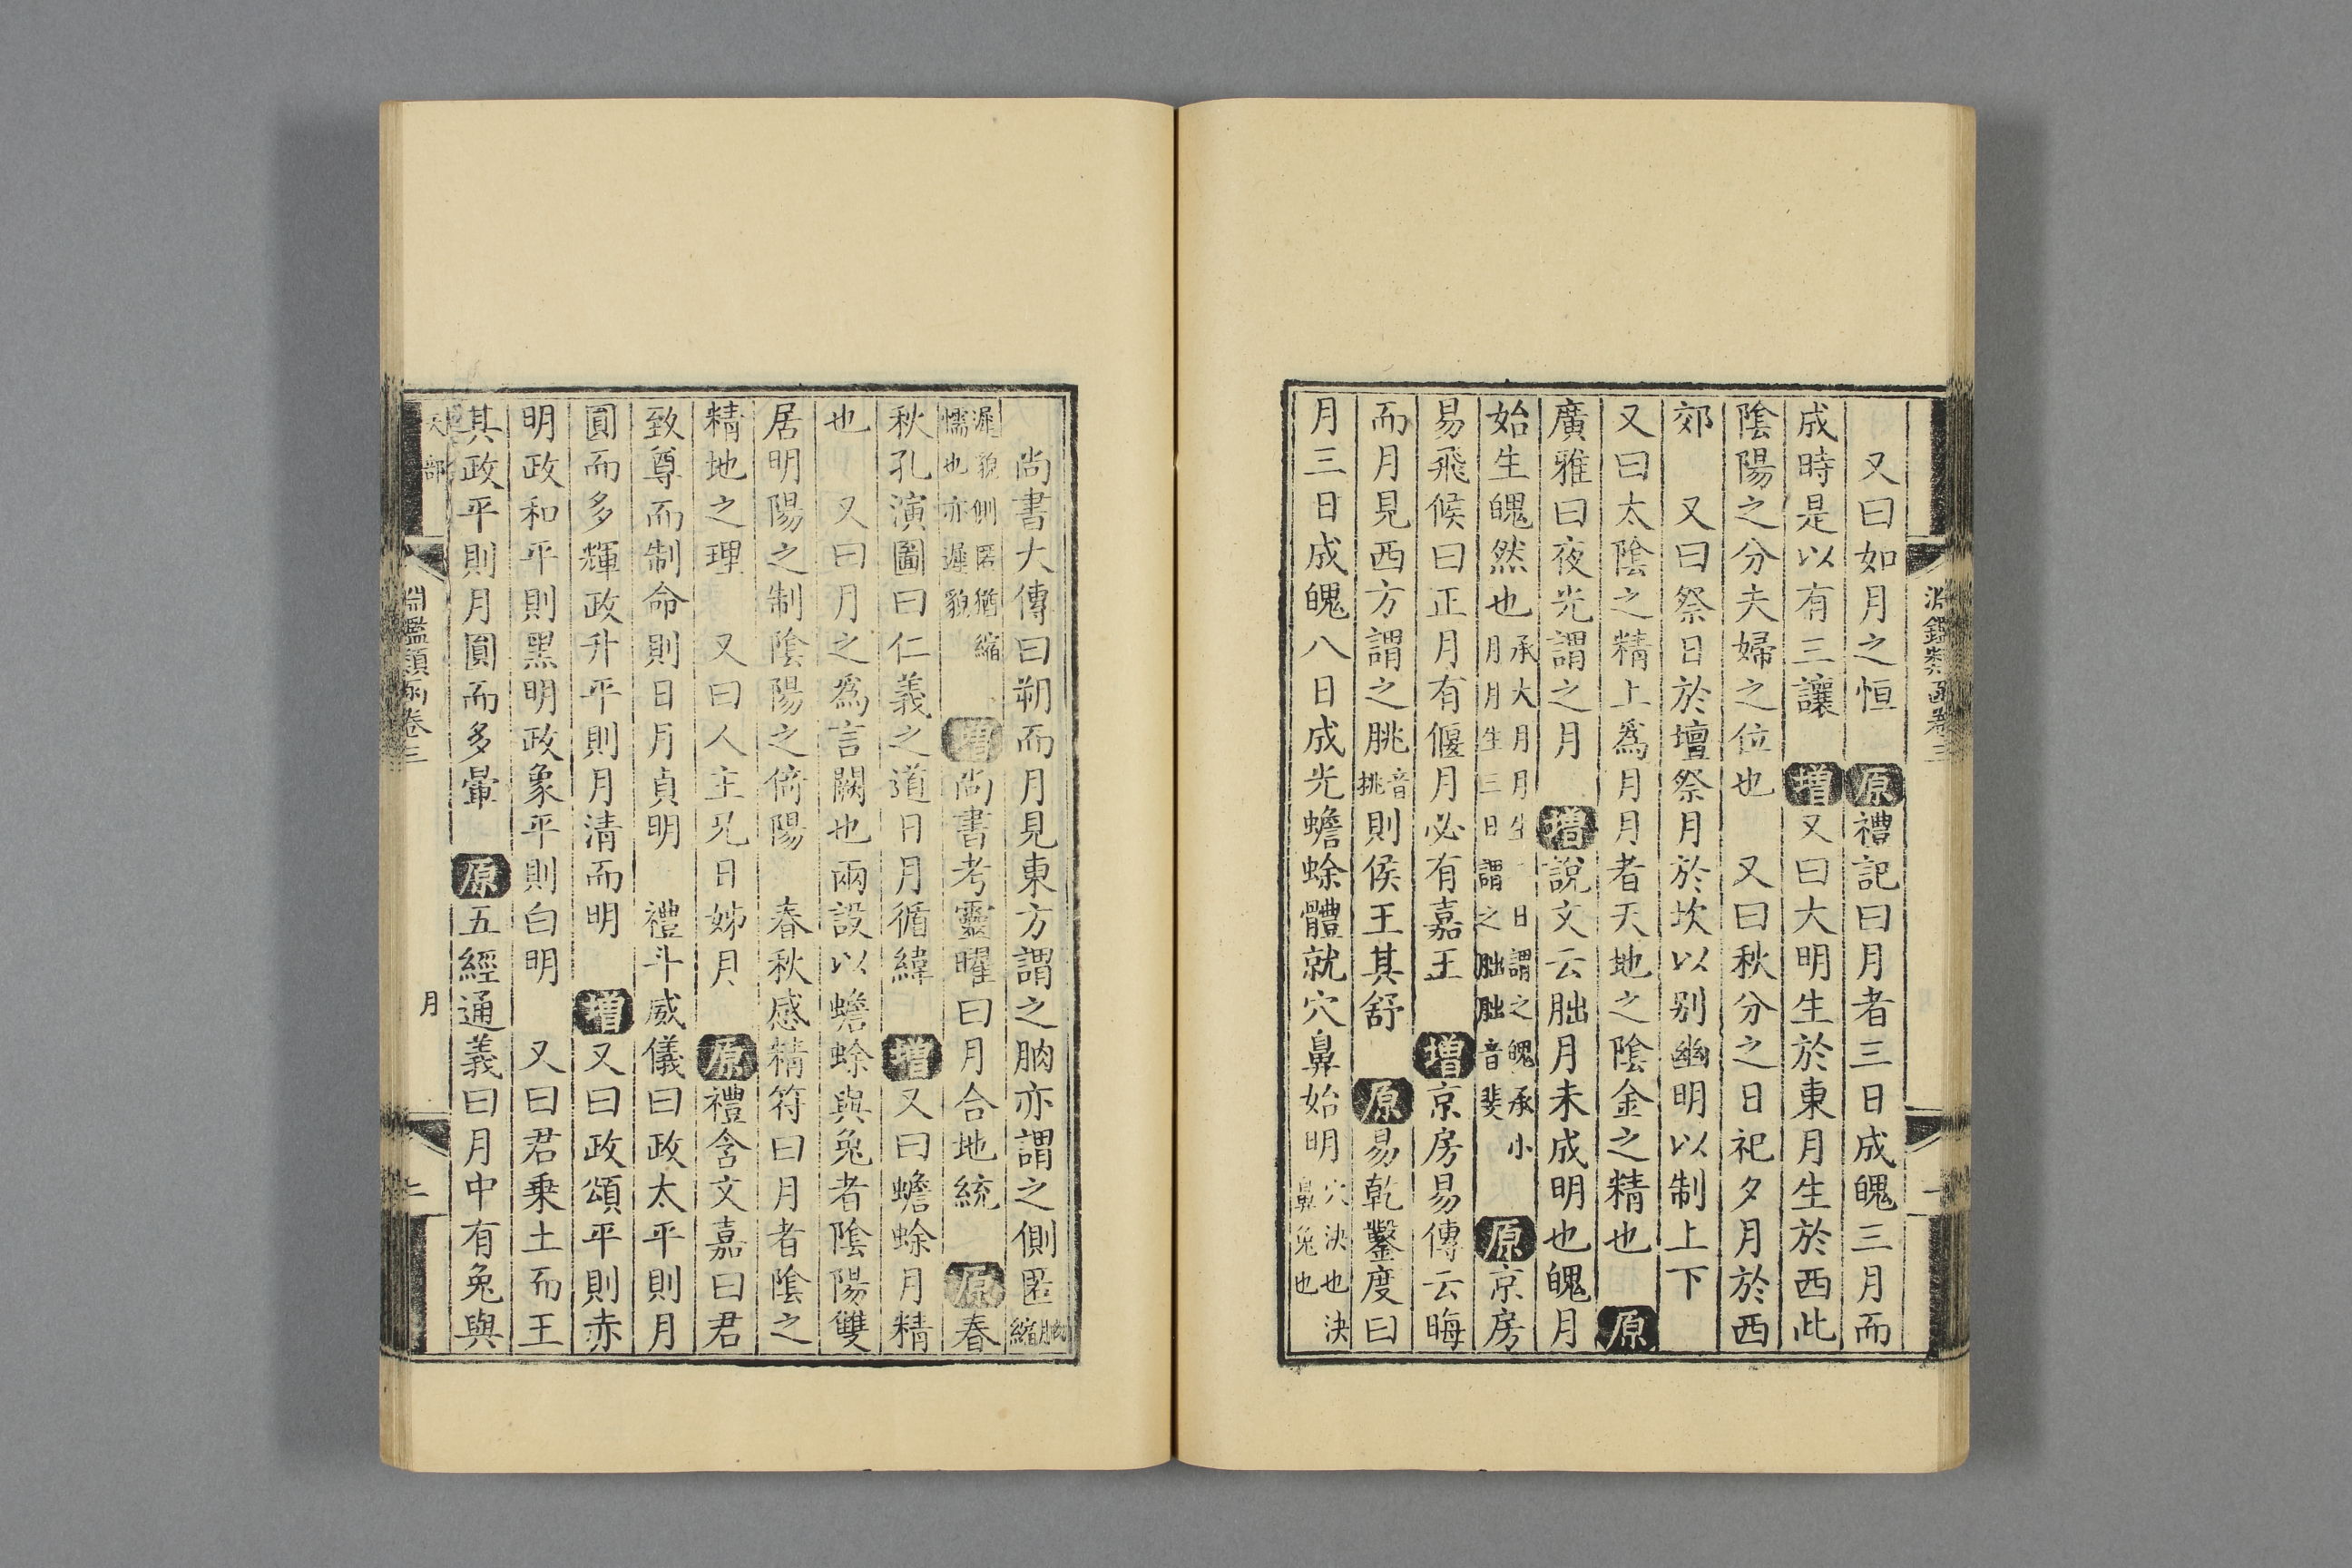 又曰如月之恒　原禮記曰月者三日成魄三月而
成時是以有三讓　增又曰大明生於東月生於西此
陰陽之分夫婦之位也　又曰秋分之日祀夕月於西
郊　又曰祭日於壇祭月於坎以别幽明以制上下
又曰太陰之精上爲月月者天地之陰金之精也　原
廣雅曰夜光謂之月　增說文云朏月未成明也魄月
始生魄然也承大月月生一日謂之魄承小月月生三日謂之朏朏音斐　原京房
易飛候曰正月有偃月必有嘉王　增京房易傳云晦
而月見西方謂之朓音挑則侯王其舒　原易乾鑿度曰
月三日成魄八日成光蟾蜍體就穴鼻始明穴決也決鼻兔也
尚書大傳曰朔而月見東方謂之朒亦謂之側匿朒縮
遲貌側匿猶縮懦也亦遲貌　增尚書考靈曜曰月合地統　原春
秋孔演圖曰仁義之道日月循緯　增又曰蟾蜍月精
也　又曰月之爲言闕也兩設以蟾蜍與兔者陰陽雙
居明陽之制陰陽之倚陽　春秋感精符曰月者陰之
精地之理　又曰人主兄日姊月　原禮含文嘉曰君
致尊而制命則日月貞明　禮斗威儀曰政太平則月
圓而多輝政升平則月清而明　增又曰政頌平則赤
明政和平則黑明政象平則白明　又曰君乘土而王
其政平則月圓而多暈　原五經通義曰月中有兔與
天部
淵鑑類函卷三
月
二